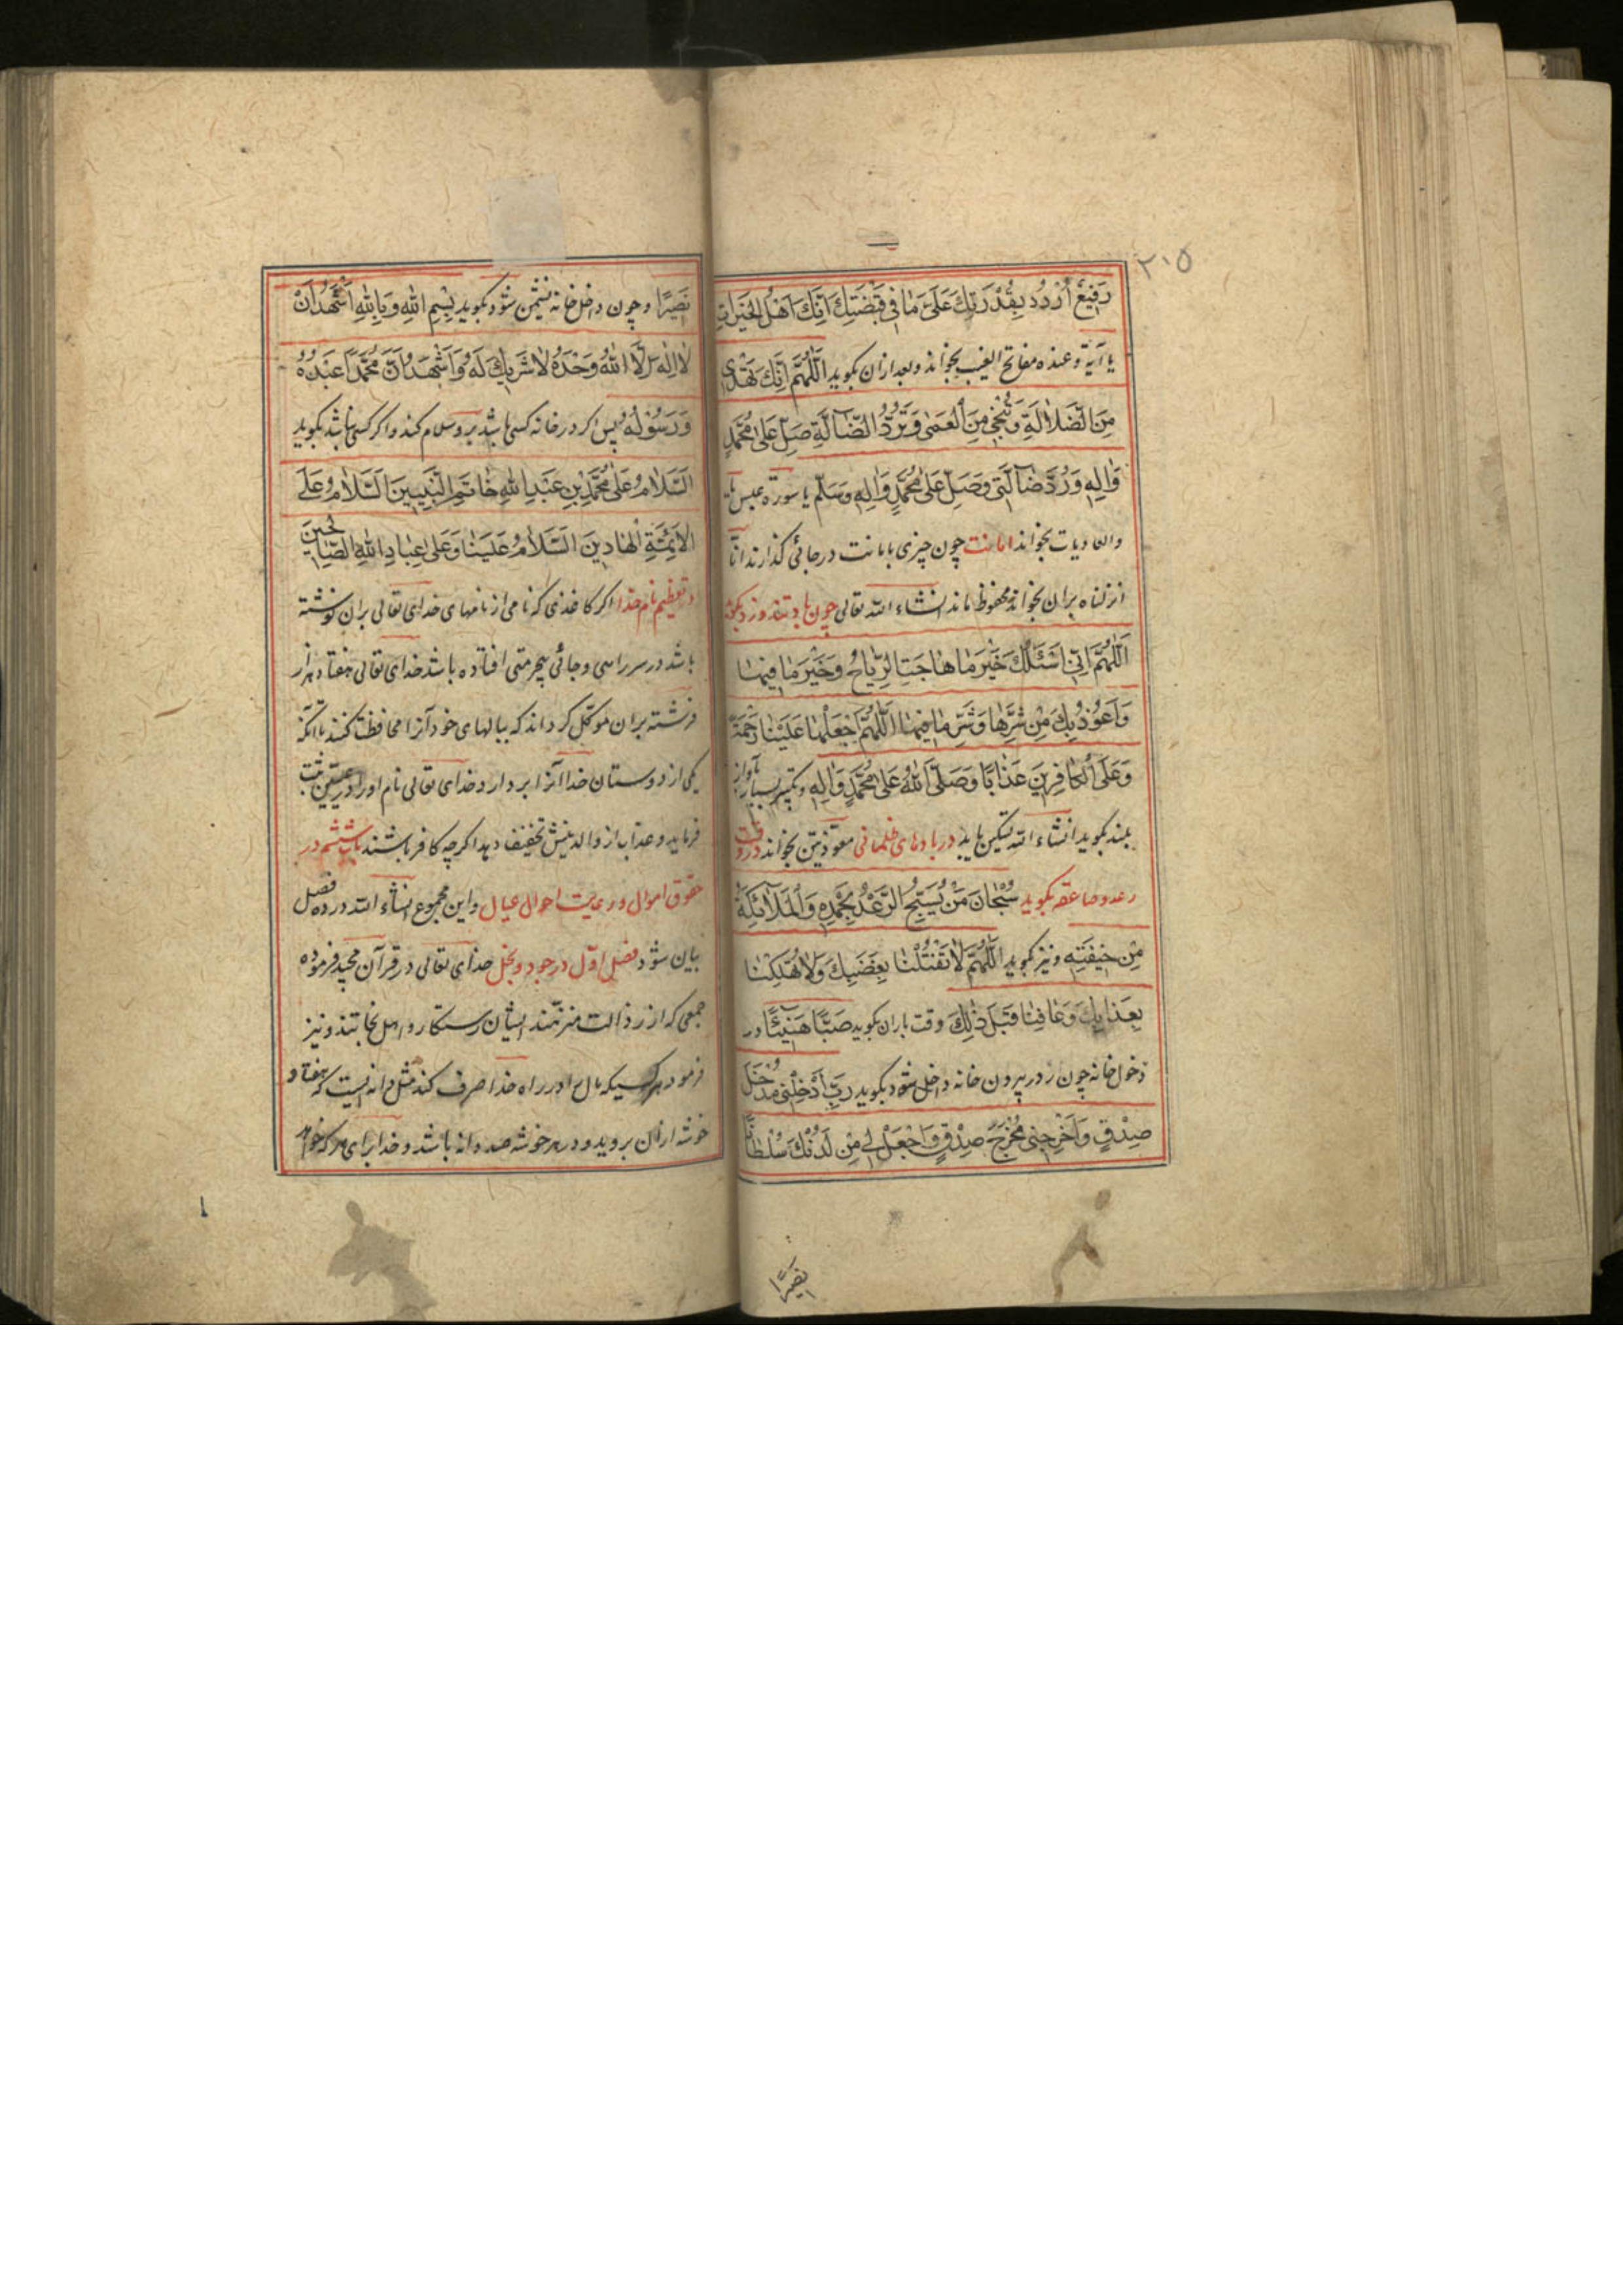 ٢٠٥
رَفِيعُ اُرْدُدْ بِقُدْرَتِكَ عَلَىٰ مَا فِي قَبْضَتِكَ اِنَّكَ اَهْلُ الْخَيْرَاتِ
يا آية وعنده مفاتح الغيب بخواند وبعد ازان بكويد اَللّٰهُمَّ اِنَّكَ تَهْدِي
مِنَ الضَّلَالَةِ وَتُنْجِي مِنَ الْعَمىٰ وَتَرُدُّ الضَّآلَّةَ صَلِّ عَلىٰ مُحَمَّدٍ
وَاٰلِهِ وَرُدَّ ضَآلَّتِي وَصَلِّ عَلىٰ مُحَمَّدٍ وَاٰلِهِ وَسَلِّمْ يا سورة عبس يا
والعاديات بخواند امانت چون چيزى بامانت در جائى كذارند انّا
انزلناه بران بخواند محفوظ ماند انشاء الله تعالى چون باد تند وزد بكويد
اَللّٰهُمَّ اِنِّي اَسْئَلُكَ خَيْرَ مَا هَاجَتِ الرِّيَاحُ وَخَيْرَ مَا فِيهَا
وَاَعُوذُ بِكَ مِنْ شَرِّهَا وَشَرِّ مَا فِيهَا اَللّٰهُمَّ اجْعَلْهَا عَلَيْنَا رَحْمَةً
وَعَلَى الْكَافِرِينَ عَذَابًا وَصَلَّى اللهُ عَلىٰ مُحَمَّدٍ وَاٰلِهِ وتكبير بسيار بآواز
بلند بكويد انشاء الله تسكين يابد در بادهاى ظلمانى معوّذتين بخواند در وقت
رعد وصاعقه بكويد سُبْحَانَ مَنْ يُسَبِّحُ الرَّعْدُ بِحَمْدِهِ وَالْمَلَآئِكَةُ
مِنْ خِيفَتِهِ ونيز بكويد اَللّٰهُمَّ لَا تَقْتُلْنَا بِغَضَبِكَ وَلَا تُهْلِكْنَا
بِعَذَابِكَ وَعَافِنَا قَبْلَ ذٰلِكَ وقت باران بكويد صَبًّا هَنِيئًا در
دخول خانه چون از در بيرون خانه داخل شود بكويد رَبِّ اَدْخِلْنِي مُدْخَلَ
صِدْقٍ وَاَخْرِجْنِي مُخْرَجَ صِدْقٍ وَاجْعَلْ لِي مِنْ لَدُنْكَ سُلْطَانًا
نصيرًا
نَصِيرًا وچون داخل خانه نشيمن شود بكويد بِسْمِ اللهِ وَبِاللهِ اَشْهَدُ اَنْ
لَا اِلٰهَ اِلَّا اللهُ وَحْدَهُ لَا شَرِيكَ لَهُ وَاَشْهَدُ اَنَّ مُحَمَّدًا عَبْدُهُ
وَرَسُولُهُ پس اكر در خانه كسى باشد برو سلام كند واكر كسى نباشد بكويد
اَلسَّلَامُ عَلىٰ مُحَمَّدِ بْنِ عَبْدِ اللهِ خَاتَمِ النَّبِيِّينَ اَلسَّلَامُ عَلَى
الْاَئِمَّةِ الْهَادِينَ اَلسَّلَامُ عَلَيْنَا وَعَلىٰ عِبَادِ اللهِ الصَّالِحِينَ
در تعظيم نام خدا اكر كاغذى كه نامى از نامهاى خداى تعالى بران نوشته
باشد در سر راهى وجائى بيحرمتى افتاده باشد خداى تعالى هفتاد هزار
فرشته بران موكّل كرداند كه ببالهاى خود آنرا محافظت كنند تا آنكه
يكى از دوستان خدا آنرا بردارد وخداى تعالى نام او را در علّيين ثبت
فرمايد وعذاب از والدينش تخفيف دهد اكرچه كافر باشند باب ششم در
حقوق اموال ورعايت احوال عيال واين مجموع انشاء الله در ده فصل
بيان شود فصل اوّل در جود وبخل خداى تعالى در قرآن مجيد فرموده
جمعى كه از رذالت منزّهند ايشان رستكار واهل نجاتند ونيز
فرمود هر كسيكه مال را در راه خدا صرف كند مثل دانه ايست كه هفتاد
خوشه ازان برويد ودر هر خوشه صد دانه باشد وخدا براى هر كه خواهد